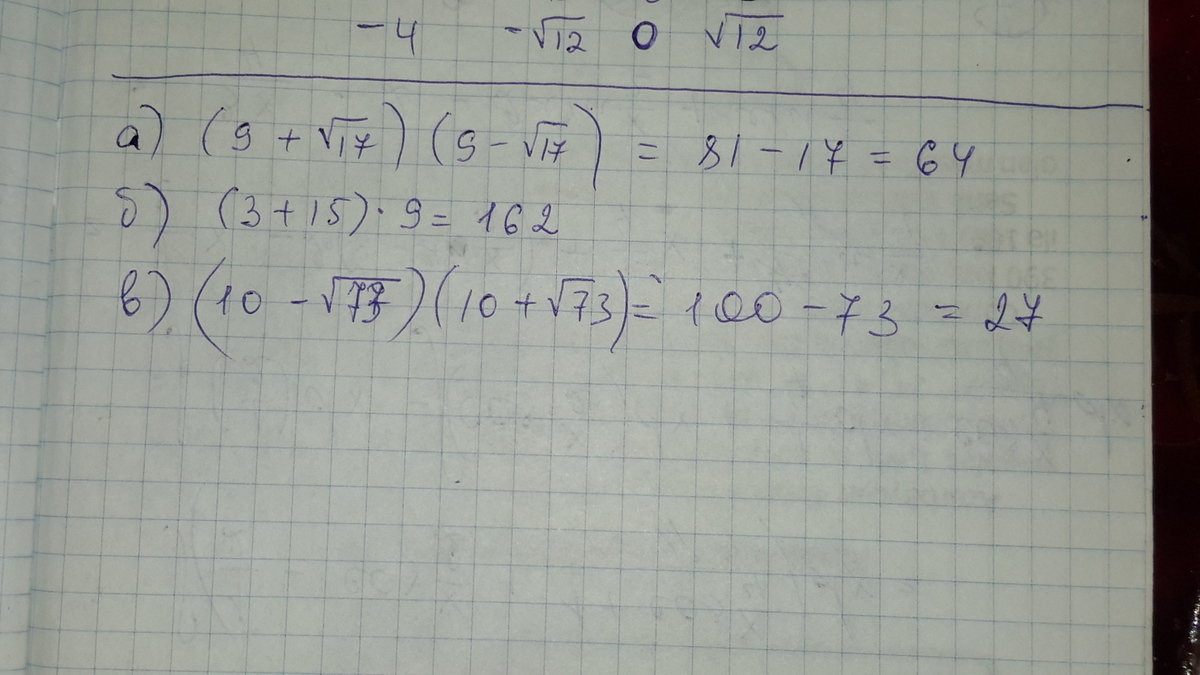 -4 -√12 0 √12
а) (9 + √17) (9 - √17) = 81 - 17 = 64
б) (3 + 15) · 9 = 162
в) (10 - √73) (10 + √73) = 100 - 73 = 27